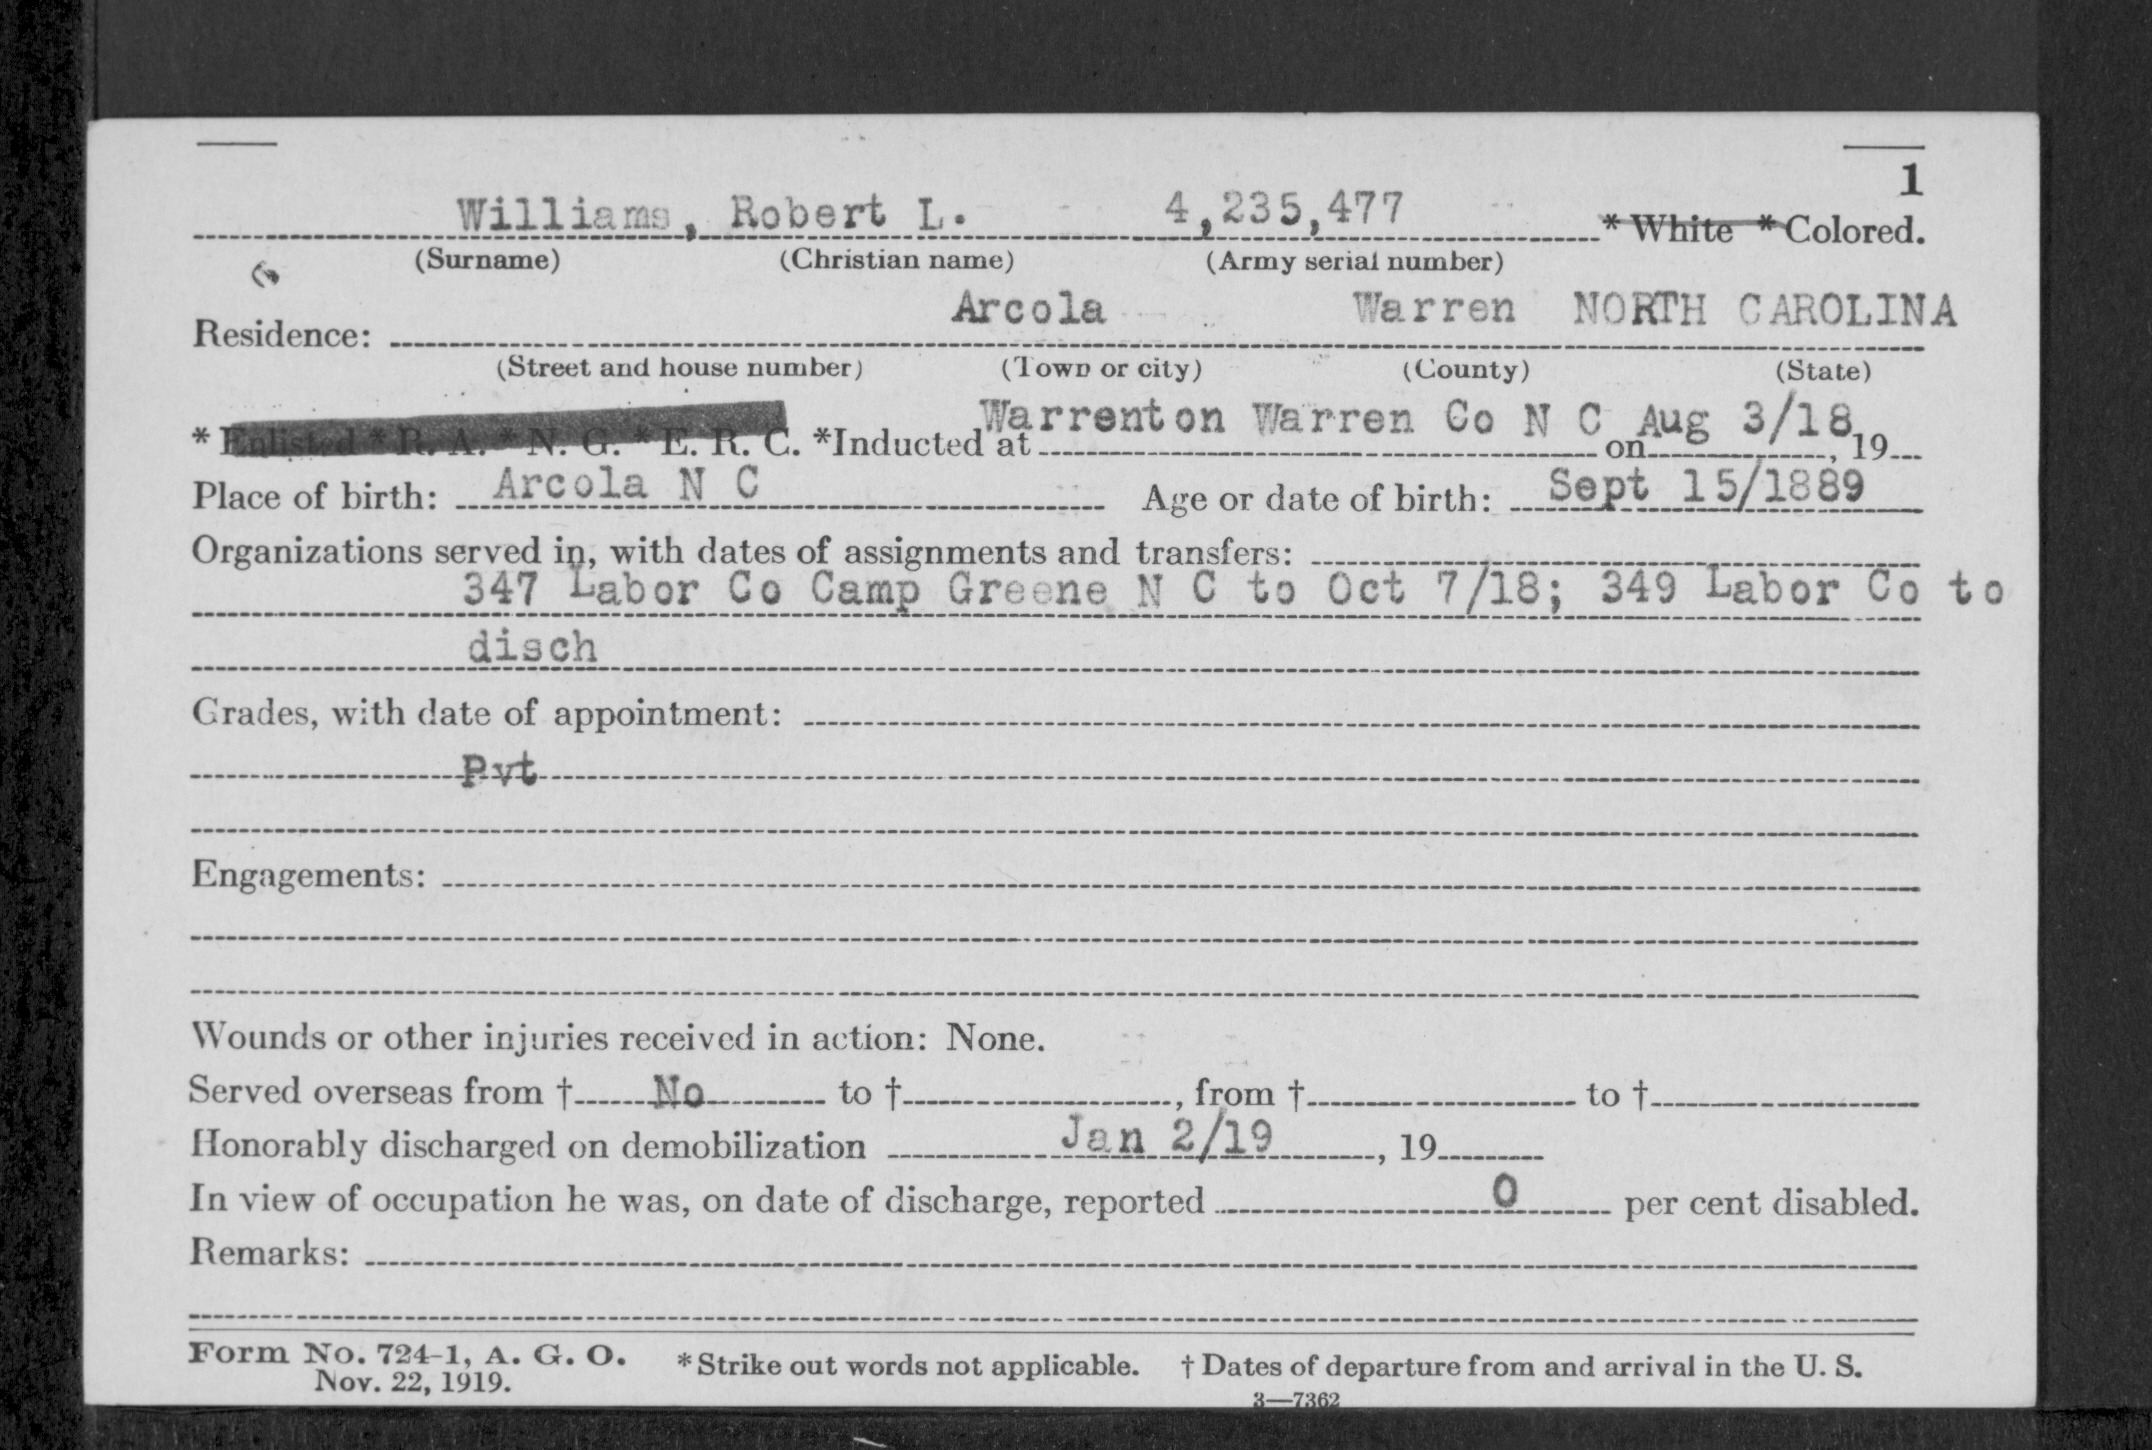 1
Williams, Robert L. 4,235,477 * White * Colored.
(Surname) (Christian name) (Army serial number)
Residence: Arcola Warren NORTH CAROLINA
(Street and house number) (Town or city) (County) (State)
* Enlisted * R. A. * N. G. * E. R. C. *Inducted at Warrenton Warren Co N C on Aug 3/18, 19
Place of birth: Arcola N C Age or date of birth: Sept 15/1889
Organizations served in, with dates of assignments and transfers:
347 Labor Co Camp Greene N C to Oct 7/18; 349 Labor Co to
disch
Grades, with date of appointment:
Pvt
Engagements:
Wounds or other injuries received in action: None.
Served overseas from † No to †, from † to †
Honorably discharged on demobilization Jan 2/19, 19
In view of occupation he was, on date of discharge, reported 0 per cent disabled.
Remarks:
Form No. 724-1, A. G. O. *Strike out words not applicable. † Dates of departure from and arrival in the U. S.
Nov. 22, 1919.
3—7362